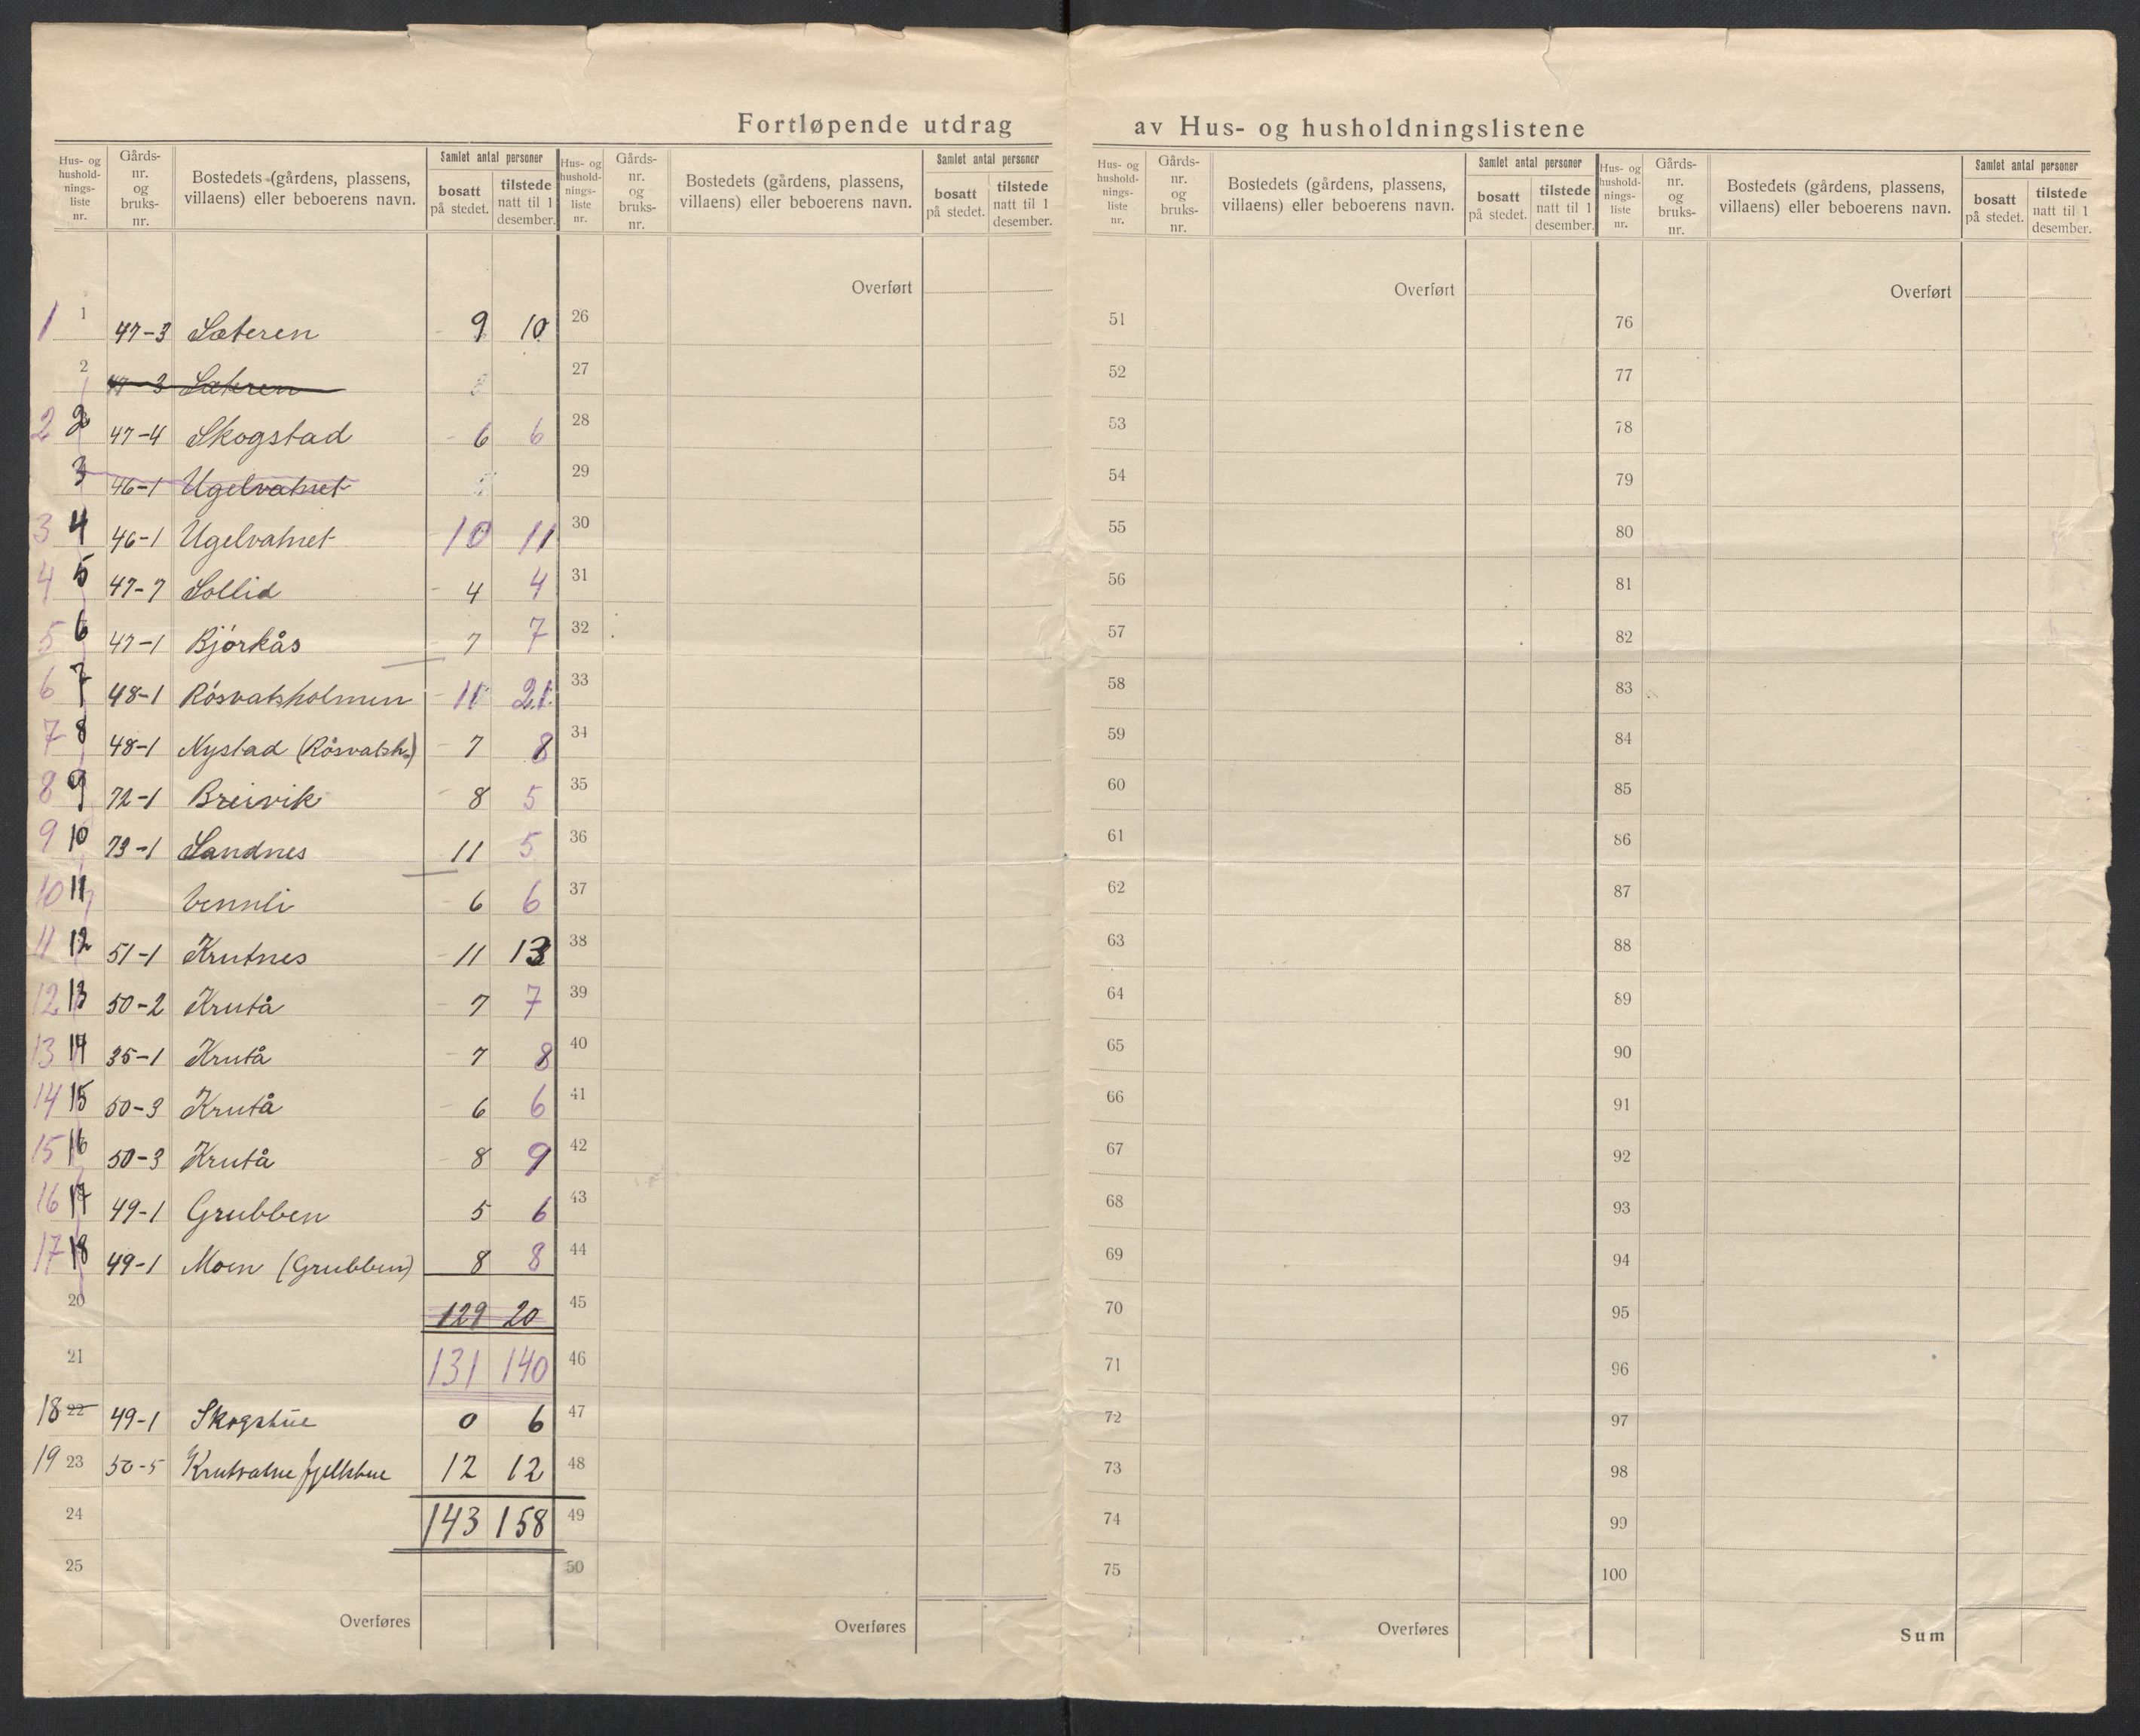 Fortløpende utdrag av Hus- og husholdningslistene
Hus- og hushold-nings-liste nr. Gårds-nr. og bruks-nr. Bostedets (gårdens, plassens, villaens) eller beboerens navn. Samlet antal personer bosatt på stedet. tilstede natt til 1 desember.
Hus- og hushold-nings-liste nr. Gårds-nr. og bruks-nr. Bostedets (gårdens, plassens, villaens) eller beboerens navn. Samlet antal personer bosatt på stedet. tilstede natt til 1 desember.
Hus- og hushold-nings-liste nr. Gårds-nr. og bruks-nr. Bostedets (gårdens, plassens, villaens) eller beboerens navn. Samlet antal personer bosatt på stedet. tilstede natt til 1 desember.
Hus- og hushold-nings-liste nr. Gårds-nr. og bruks-nr. Bostedets (gårdens, plassens, villaens) eller beboerens navn. Samlet antal personer bosatt på stedet. tilstede natt til 1 desember.
Overført Overført Overført
1 1 47-3 Sæteren 9 10 26 51 76
2 47-3 Sæteren 27 52 77
2 2 47-4 Skogstad 6 6 28 53 78
3 46-1 Ugelvatnet 29 54 79
3 4 46-1 Ugelvatnet 10 11 30 55 80
4 5 47-7 Sollid 4 4 31 56 81
5 6 47-1 Bjórkås 7 7 32 57 82
6 7 48-1 Rósvatsholmen 11 21 33 58 83
7 8 48-1 Nystad (Rósvatsh.) 7 8 34 59 84
8 9 72-1 Breivik 8 5 35 60 85
9 10 73-1 Sandnes 11 5 36 61 86
10 11 Vennli 6 6 37 62 87
11 12 51-1 Krutnes 11 13 38 63 88
12 13 50-2 Krutå 7 7 39 64 89
13 14 35-1 Krutå 7 8 40 65 90
14 15 50-3 Krutå 6 6 41 66 91
15 16 50-3 Krutå 8 9 42 67 92
16 17 49-1 Grubben 5 6 43 68 93
17 18 49-1 Moen (Grubben) 8 8 44 69 94
20 129 20 45 70 95
21 131 140 46 71 96
18 22 49-1 Skogstue 0 6 47 72 97
19 23 50-5 Krutvatne fjellstue 12 12 48 73 98
24 143 158 49 74 99
25 50 75 100
Overføres Overføres Overføres Sum